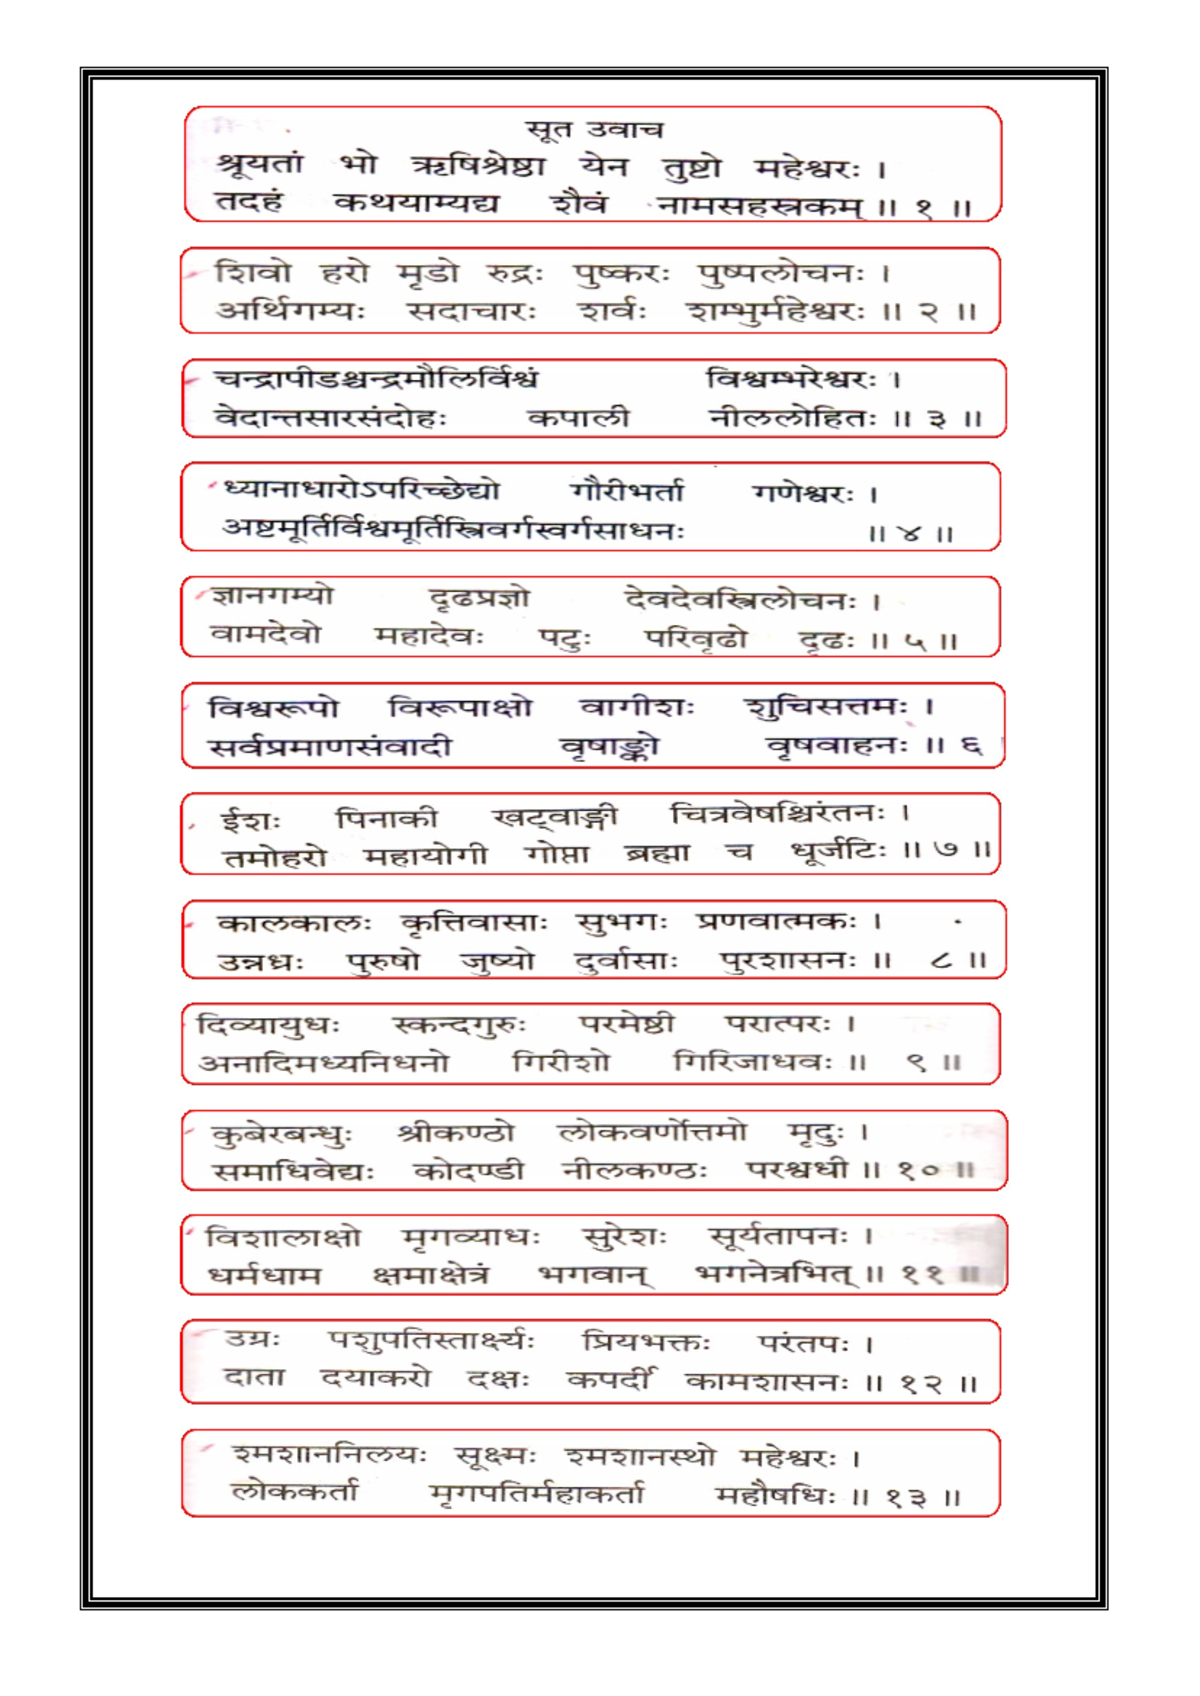 सूत उवाच
श्रूयतां भो ऋषिश्रेष्ठा येन तुष्टो महेश्वरः ।
तदहं कथयाम्यद्य शैवं नामसहस्रकम् ॥ १ ॥
शिवो हरो मृडो रुद्रः पुष्करः पुष्पलोचनः ।
अर्थिगम्यः सदाचारः शर्वः शम्भुर्महेश्वरः ॥ २ ॥
चन्द्रापीडश्चन्द्रमौलिर्विश्वं विश्वम्भरेश्वरः ।
वेदान्तसारसंदोहः कपाली नीललोहितः ॥ ३ ॥
ध्यानाधारोऽपरिच्छेद्यो गौरीभर्ता गणेश्वरः ।
अष्टमूर्तिर्विश्वमूर्तिस्त्रिवर्गस्वर्गसाधनः ॥ ४ ॥
ज्ञानगम्यो दृढप्रज्ञो देवदेवस्त्रिलोचनः ।
वामदेवो महादेवः पटुः परिवृढो दृढः ॥ ५ ॥
विश्वरूपो विरूपाक्षो वागीशः शुचिसत्तमः ।
सर्वप्रमाणसंवादी वृषाङ्को वृषवाहनः ॥ ६
ईशः पिनाकी खट्वाङ्गी चित्रवेषश्चिरंतनः ।
तमोहरो महायोगी गोप्ता ब्रह्मा च धूर्जटिः ॥ ७ ॥
कालकालः कृत्तिवासाः सुभगः प्रणवात्मकः ।
उन्नध्रः पुरुषो जुष्यो दुर्वासाः पुरशासनः ॥ ८ ॥
दिव्यायुधः स्कन्दगुरुः परमेष्ठी परात्परः ।
अनादिमध्यनिधनो गिरीशो गिरिजाधवः ॥ ९ ॥
कुबेरबन्धुः श्रीकण्ठो लोकवर्णोत्तमो मृदुः ।
समाधिवेद्यः कोदण्डी नीलकण्ठः परश्वधी ॥ १० ॥
विशालाक्षो मृगव्याधः सुरेशः सूर्यतापनः ।
धर्मधाम क्षमाक्षेत्रं भगवान् भगनेत्रभित् ॥ ११ ॥
उग्रः पशुपतिस्तार्क्ष्यः प्रियभक्तः परंतपः ।
दाता दयाकरो दक्षः कपर्दी कामशासनः ॥ १२ ॥
श्मशाननिलयः सूक्ष्मः श्मशानस्थो महेश्वरः ।
लोककर्ता मृगपतिर्महाकर्ता महौषधिः ॥ १३ ॥